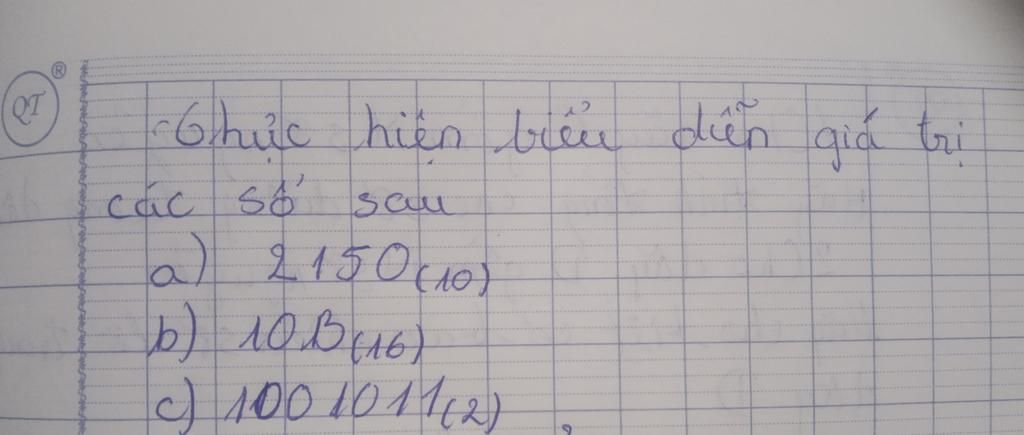 QT ®
Thực hiện biểu diễn giá trị
các số sau
a) 2150(10)
b) 10B(16)
c) 1001011(2)